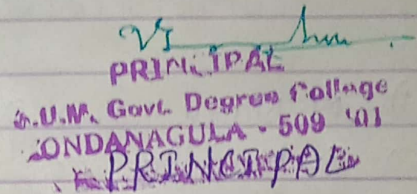 PRINCIPAL
.U.M. Govt. Degree College
ONDANAGULA - 509
PRINCIPAL